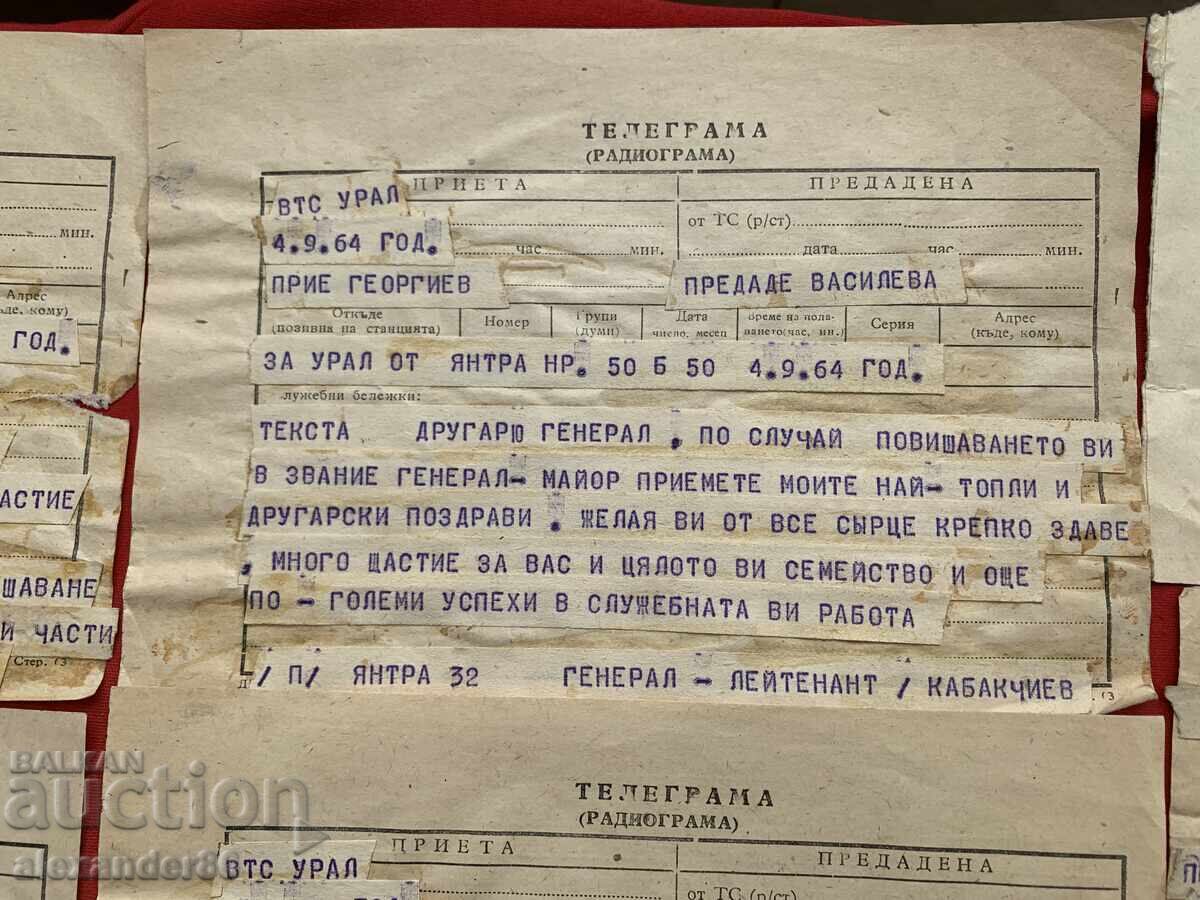 ТЕЛЕГРАМА
(РАДИОГРАМА)
ПРИЕТА ПРЕДАДЕНА
ВТС УРАЛ от ТС (р/ст)
4.9.64 ГОД. час мин. дата час мин.
ПРИЕ ГЕОРГИЕВ ПРЕДАДЕ ВАСИЛЕВА
Откъде (позивна на станцията) Номер Групи (думи) Дата число, месец Серия Адрес (къде, кому)
ЗА УРАЛ ОТ ЯНТРА НР. 50 Б 50 4.9.64 ГОД.
служебни бележки:
ТЕКСТА ДРУГАРЮ ГЕНЕРАЛ . ПО СЛУЧАЙ ПОВИШАВАНЕТО ВИ
В ЗВАНИЕ ГЕНЕРАЛ- МАЙОР ПРИЕМЕТЕ МОИТЕ НАЙ- ТОПЛИ И
ДРУГАРСКИ ПОЗДРАВИ . ЖЕЛАЯ ВИ ОТ ВСЕ СЫРЦЕ КРЕПКО ЗДАВЕ
. МНОГО ЩАСТИЕ ЗА ВАС И ЦЯЛОТО ВИ СЕМЕЙСТВО И ОЩЕ
ПО - ГОЛЕМИ УСПЕХИ В СЛУЖЕБНАТА ВИ РАБОТА
/ П/ ЯНТРА 32 ГЕНЕРАЛ - ЛЕЙТЕНАНТ / КАБАКЧИЕВ
мин.
Адрес
ГОД.
АСТИЕ
ШАВАНЕ
И ЧАСТИ
Стер. 63
ТЕЛЕГРАМА
(РАДИОГРАМА)
ПРИЕТА ПРЕДАДЕНА
ВТС УРАЛ от ТС (р/ст)
BALKAN
auction
alexander8